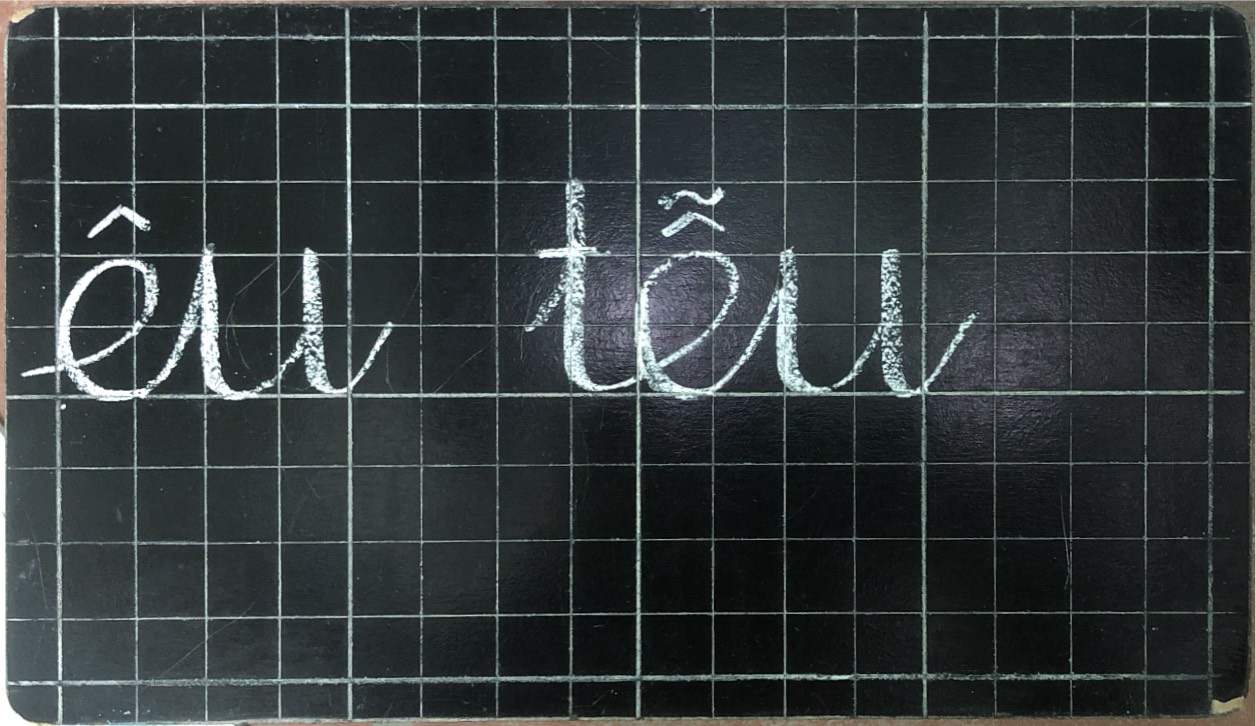 êu tễu